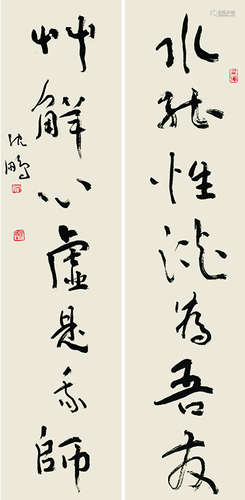 水能性淡為吾友
艸解心虛是我師
沈鵬